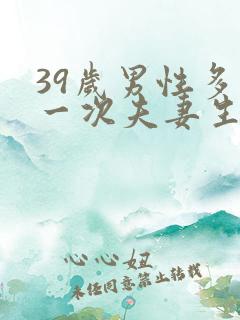 39歲男性多
一次夫妻生
心心妞
未经同意禁止转载